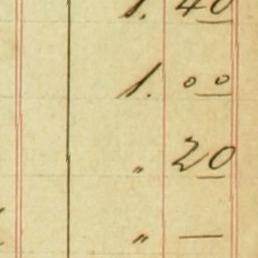 1. 40
1. 00
" 20
" —